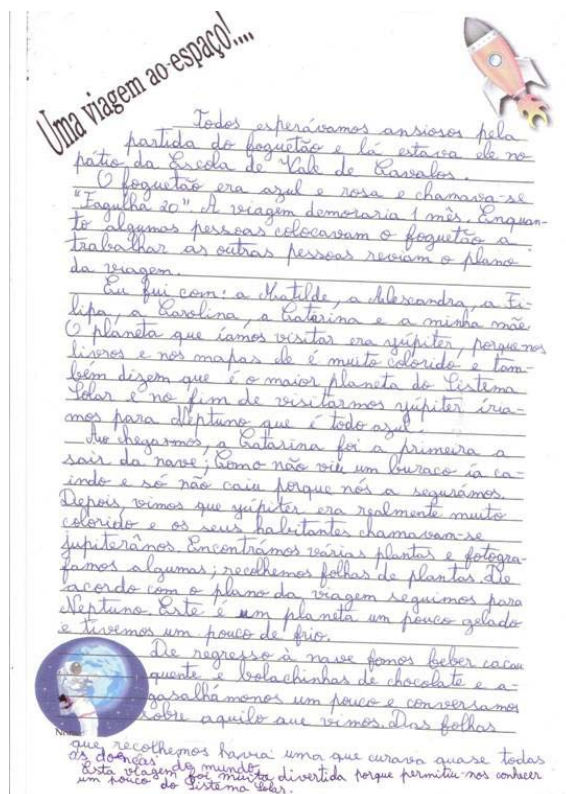 Uma viagem ao espaço!....
Todos esperávamos ansiosos pela
partida do foguetão e lá estava ele no
pátio da Escola de Vale de Cavalos.
O foguetão era azul e rosa e chamava-se
"Fagulha 20". A viagem demoraria 1 mês. Enquan-
to algumas pessoas colocavam o foguetão a
trabalhar as outras pessoas reviam o plano
da viagem.
Eu fui com: a Matilde, a Alexandra, a Fi-
lipa, a Carolina, a Catarina e a minha mãe.
O planeta que íamos visitar era yúpiter, porque nos
livros e nos mapas ele é muito colorido e tam-
bém dizem que é o maior planeta do Sistema
Solar e no fim de visitarmos yúpiter iria-
mos para Neptuno que é todo azul.
Ao chegarmos, a Catarina foi a primeira a
sair da nave; Como não viu um buraco ia ca-
indo e só não caiu porque nós a segurámos.
Depois vimos que yúpiter era realmente muito
colorido e os seus habitantes chamavam-se
jupiterânos. Encontrámos várias plantas e fotogra-
famos algumas; recolhemos folhas de plantas. De
acordo com o plano da viagem seguimos para
Neptuno. Este é um planeta um pouco gelado
e tivemos um pouco de frio.
De regresso à nave fomos beber cacau
quente e bolachinhas de chocolate e a-
gasalhámonos um pouco e conversamos
sobre aquilo que vimos. Das folhas
que recolhemos havia uma que curava quase todas
as doenças do mundo.
Esta viagem foi muito divertida porque permitiu-nos conhecer
um pouco do Sistema Solar.